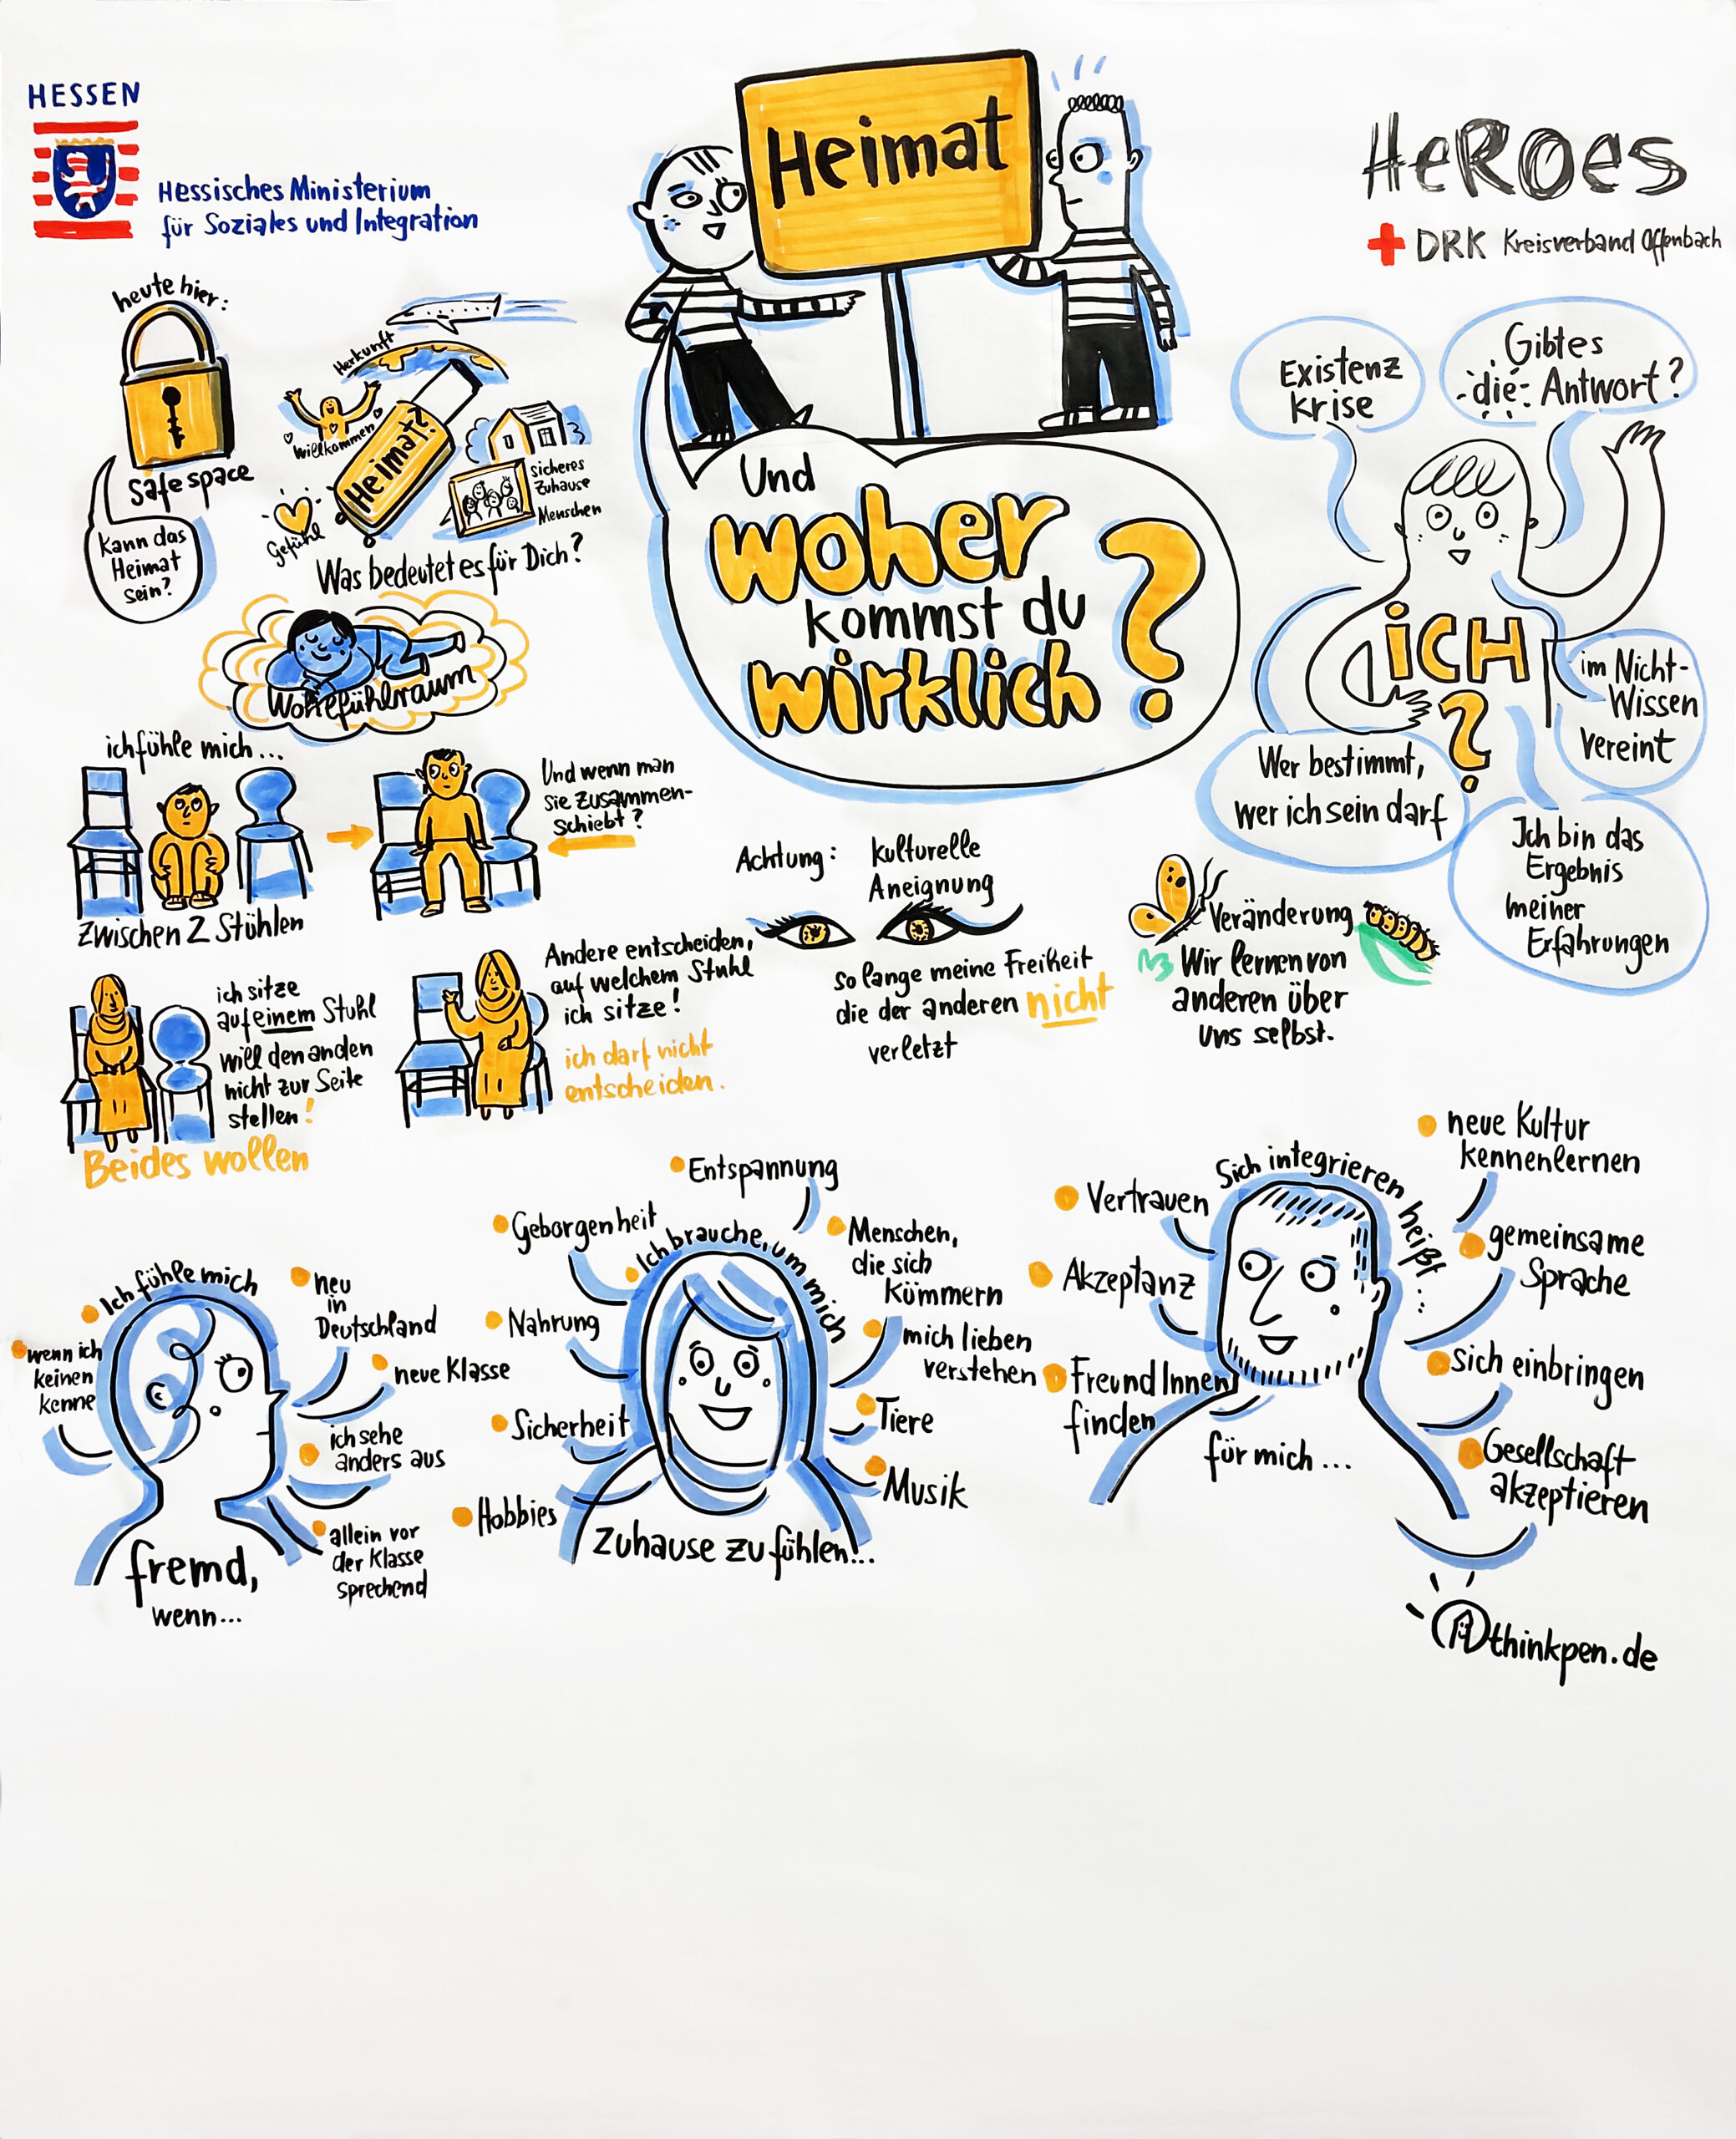 HESSEN
Hessisches Ministerium
für Soziales und Integration
Heimat
HeROes
DRK Kreisverband Offenbach
heute hier:
Safe space
Kann das
Heimat
sein?
Herkunft
Willkommen
Heimat?
Gefühl
sicheres
Zuhause
Menschen
Was bedeutet es für Dich?
Und
woher
kommst du
wirklich
?
Existenz
krise
Gibt es
die Antwort?
iCH
?
im Nicht-
Wissen
vereint
Wer bestimmt,
wer ich sein darf
Ich bin das
Ergebnis
meiner
Erfahrungen
ich fühle mich...
Zwischen 2 Stühlen
Und wenn man
sie zusammen-
schiebt?
ich sitze
auf einem Stuhl
will den anden
nicht zur Seite
stellen!
Beides wollen
Andere entscheiden,
auf welchem Stuhl
ich sitze!
ich darf nicht
entscheiden.
Achtung: kulturelle
Aneignung
so lange meine Freiheit
die der anderen nicht
verletzt
Veränderung
Wir lernen von
anderen über
uns selbst.
Ich fühle mich
fremd,
wenn...
wenn ich
keinen
kenne
neu
in
Deutschland
neue Klasse
ich sehe
anders aus
allein vor
der Klasse
sprechend
Ich brauche, um mich
zuhause zu fühlen...
Entspannung
Geborgenheit
Nahrung
Sicherheit
Hobbies
Menschen,
die sich
kümmern
mich lieben
verstehen
Tiere
Musik
Sich integrieren heißt...
für mich...
Vertrauen
Akzeptanz
Freund Innen
finden
neue Kultur
kennenlernen
gemeinsame
Sprache
sich einbringen
Gesellschaft
akzeptieren
thinkpen.de